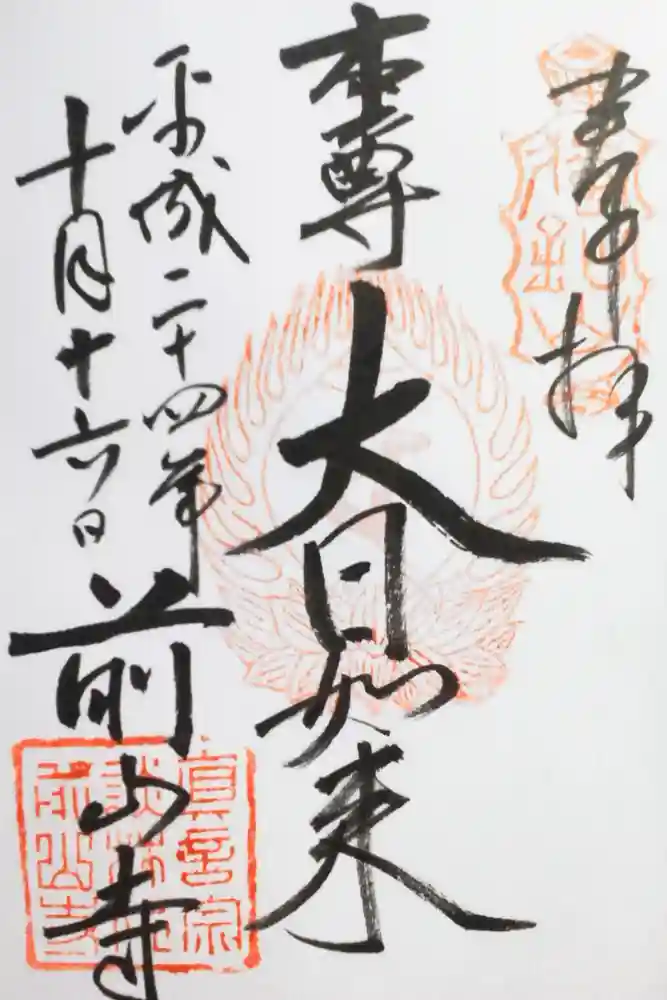 奉拝
本尊
大日如来
平成二十四年
十月十六日
前山寺
真言宗
前山寺